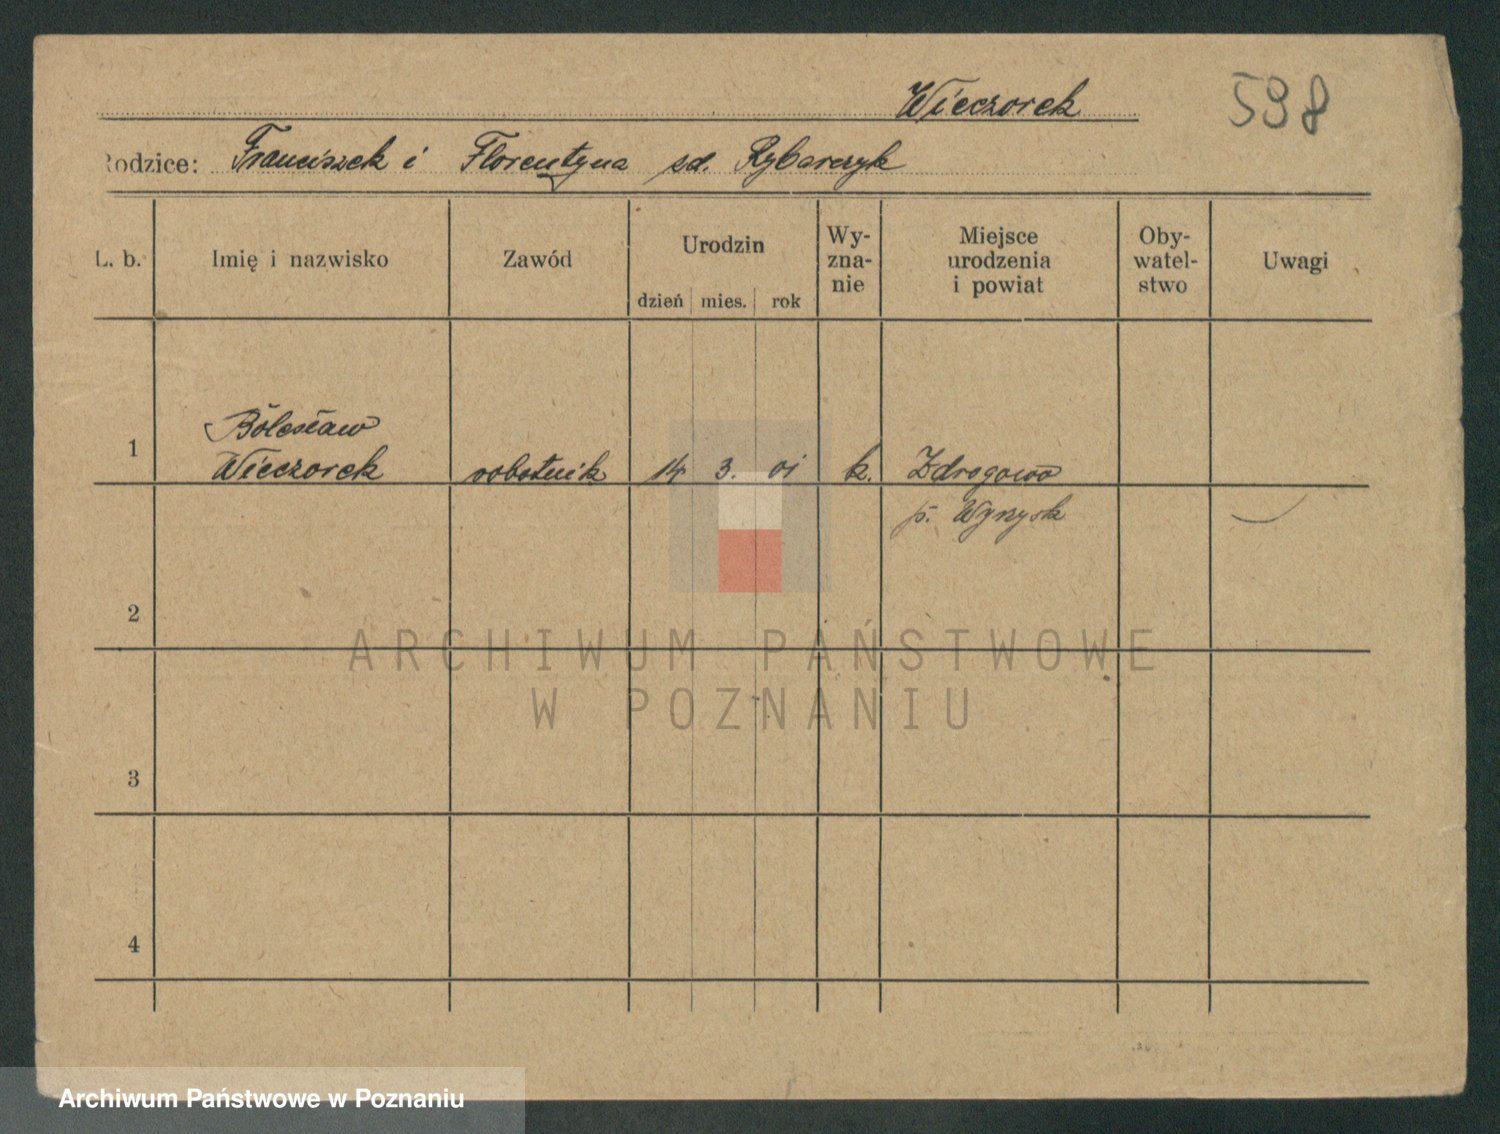 Wieczorek
598
Rodzice: Franciszek i Florentyna zd. Rybarczyk
L. b.
Imię i nazwisko
Zawód
Urodzin
dzień mies. rok
Wy-
zna-
nie
Miejsce
urodzenia
i powiat
Oby-
watel-
stwo
Uwagi
1
Bolesław
Wieczorek
robotnik
14 3. 01
k.
Zdrogowo
p. Wyrzysk
2
3
4
ARCHIWUM PAŃSTWOWE
W POZNANIU
Archiwum Państwowe w Poznaniu